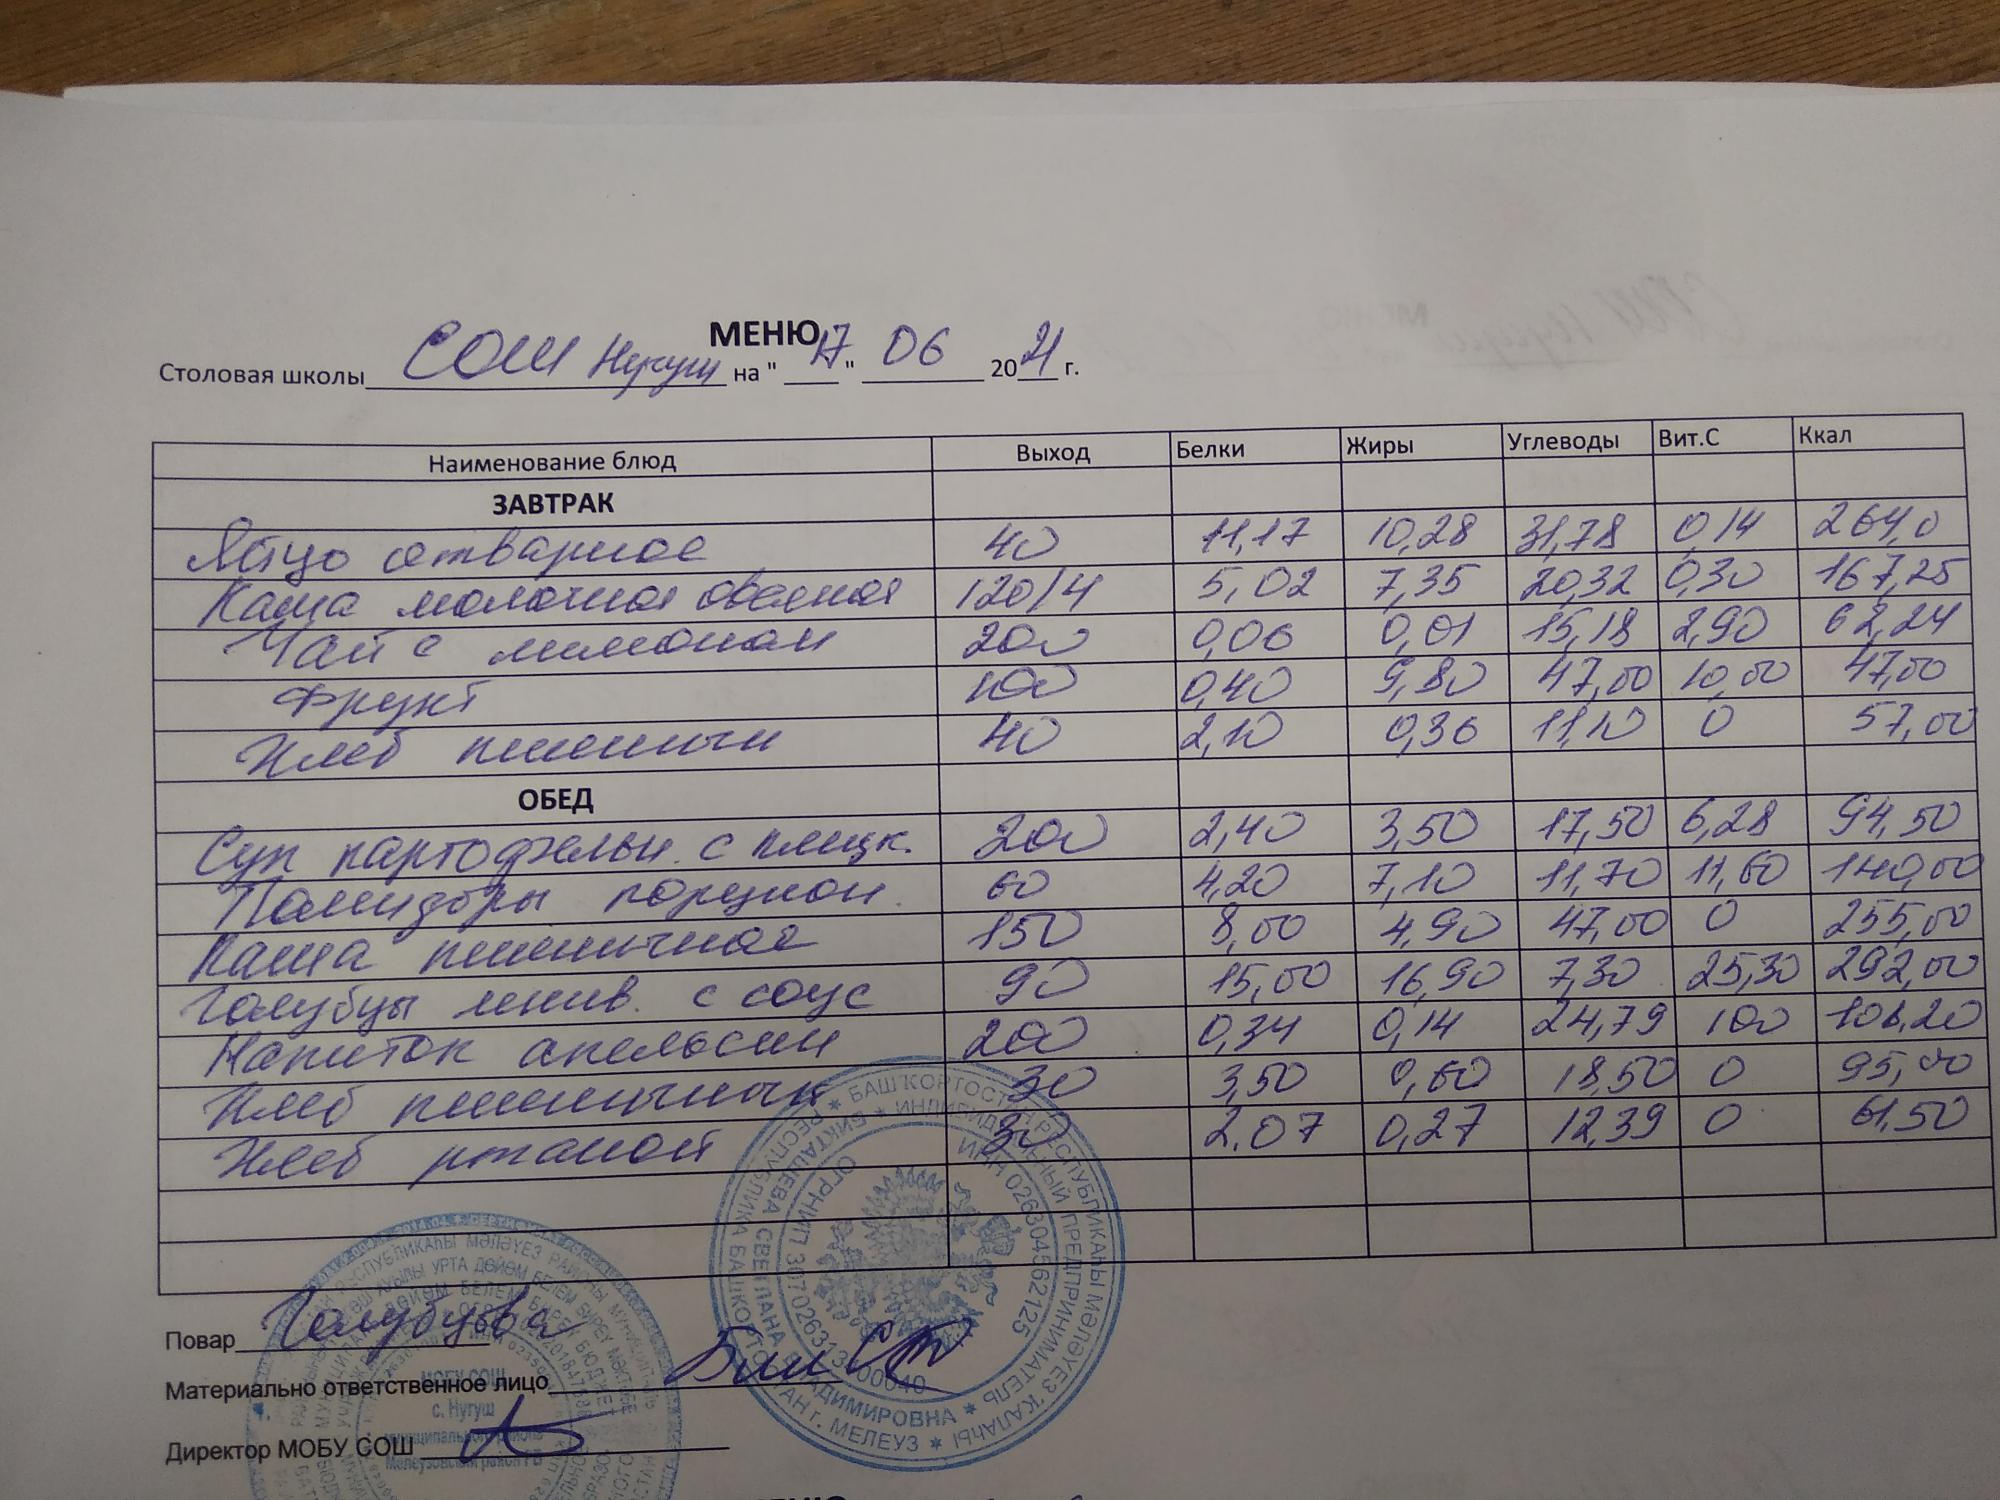 МЕНЮ
Столовая школы СОШ Нугуш на "17" 06 2021 г.
Наименование блюд Выход Белки Жиры Углеводы Вит.С Ккал
ЗАВТРАК
Яйцо отварное 40 11,17 10,28 31,78 0,14 264,0
Каша молочная овсяная 120/4 5,02 7,35 20,32 0,30 167,25
Чай с лимоном 200 0,06 0,01 15,18 2,90 62,24
Фрукт 100 0,40 9,80 47,00 10,00 47,00
Хлеб пшеничн 40 2,10 0,36 11,10 0 57,00
ОБЕД
Суп картофельн. с клецк. 200 2,40 3,50 17,50 6,28 94,50
Помидоры порцион. 60 4,20 7,10 11,70 11,60 140,00
Каша пшеничная 150 8,00 4,90 47,00 0 255,00
Голубцы ленив. с соус 90 15,00 16,90 7,30 25,30 292,00
Напиток апельсин 200 0,34 0,14 24,79 100 106,20
Хлеб пшеничный 30 3,50 0,60 18,50 0 95,00
Хлеб ржаной 30 2.07 0,27 12,39 0 61,50
Повар Голубцова
Материально ответственное лицо
Директор МОБУ СОШ
БАШҠОРТОСТАН РЕСПУБЛИКАҺЫ МӘЛӘҮЕЗ ҠАЛАҺЫ
РЕСПУБЛИКА БАШКОРТОСТАН г. МЕЛЕУЗ
ИНДИВИДУАЛЬНЫЙ ПРЕДПРИНИМАТЕЛЬ
БИКТАШЕВА СВЕТЛАНА ВЛАДИМИРОВНА
ИНН 026304562125
МОБУ СОШ
с. Нугуш
муниципального района
Мелеузовский район РБ